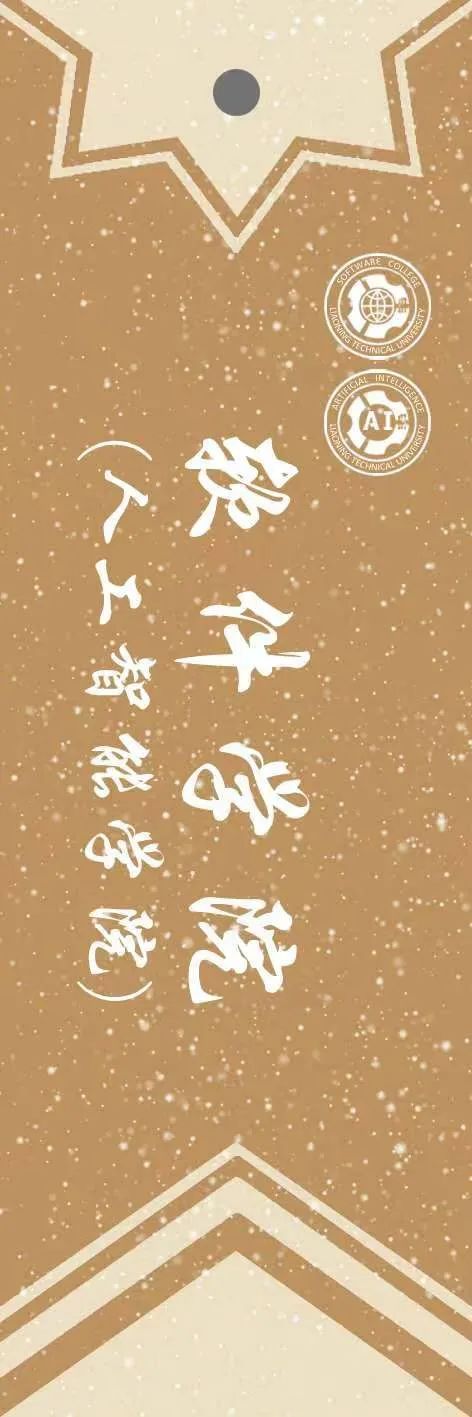 SOFTWARE COLLEGE
LIAONING TECHNICAL UNIVERSITY
ARTIFICIAL INTELLIGENCE
AI
LIAONING TECHNICAL UNIVERSITY
软件学院
（人工智能学院）